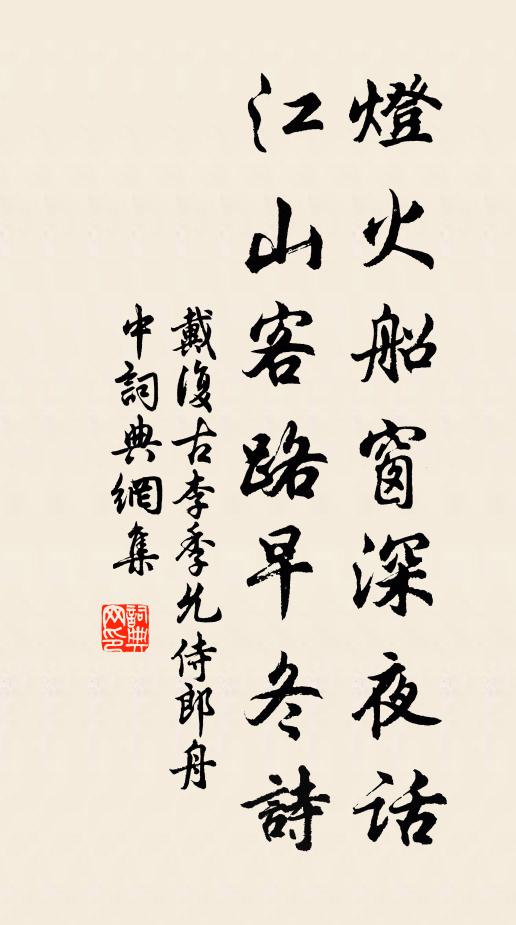 燈火船窗深夜话
江山客路早冬詩
戴復古李季允侍郎舟
中詞典網集
詞典网印